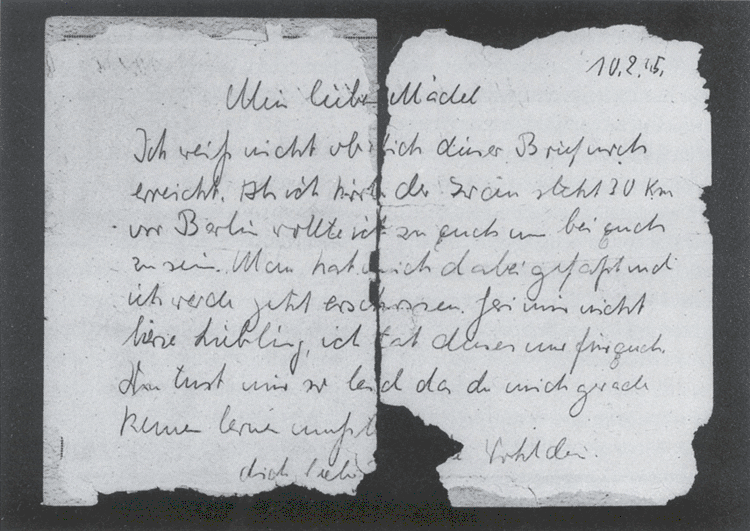 10.2.45.
Mein liebes Mädel
Ich weiß nicht ob dich dieser Brief noch
erreicht. Als ich hörte der Iwan steht 30 Km
vor Berlin wollte ich zu euch um bei euch
zu sein. Man hat mich dabei gefaßt und
ich werde jetzt erschossen. Sei mir nicht
böse Liebling, ich tat dieses nur für euch.
tust mir so leid das du mich gerade
kennen lernen mußt
dich lieb